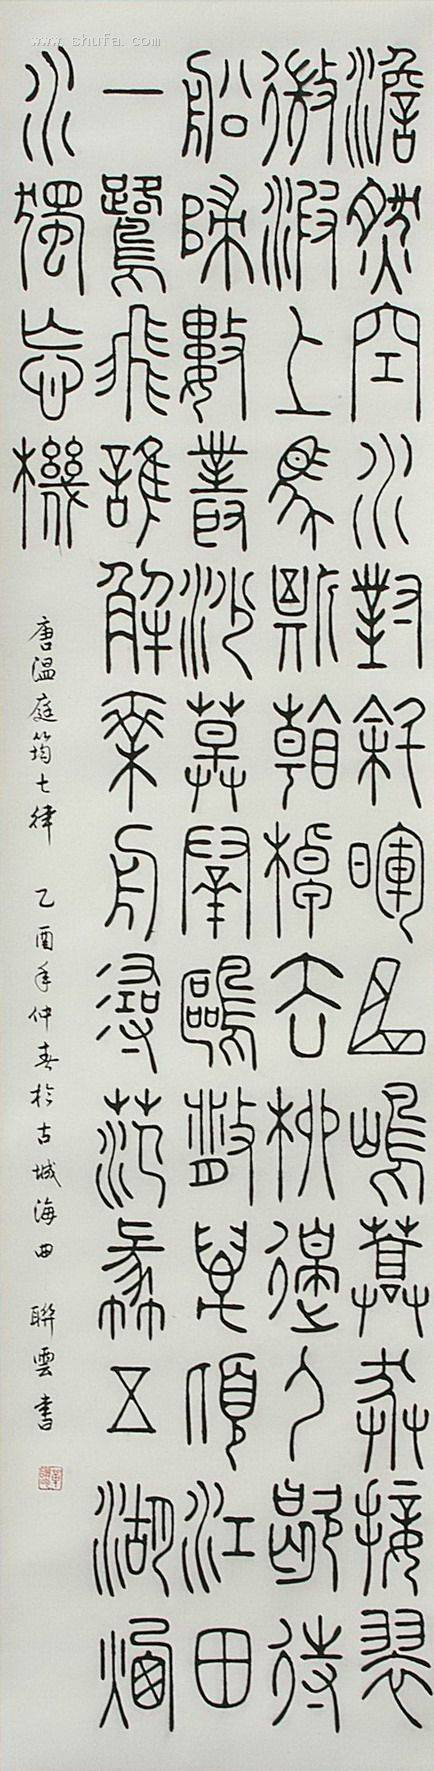 www.shufa.com
澹然空水對斜暉曲島蒼茫接翠
微波上馬嘶看棹去柳邊人歇待
船歸數叢沙草群鷗散萬頃江田
一鷺飛誰解乘舟尋范蠡五湖煙
水獨忘機
唐溫庭筠七律 乙酉年仲春於古城海曲 聯雲書